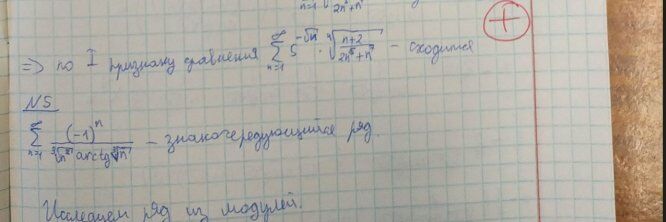 n=1 2n⁵+n⁷
=> по I признаку сравнения ∑ n=1 ∞ 5^(-√n) · ∜((n+2)/(2n⁵+n⁷)) – сходится
N5
∑ n=1 ∞ (-1)ⁿ / arctg – знакочередующийся ряд.
Исследуем ряд из модулей.